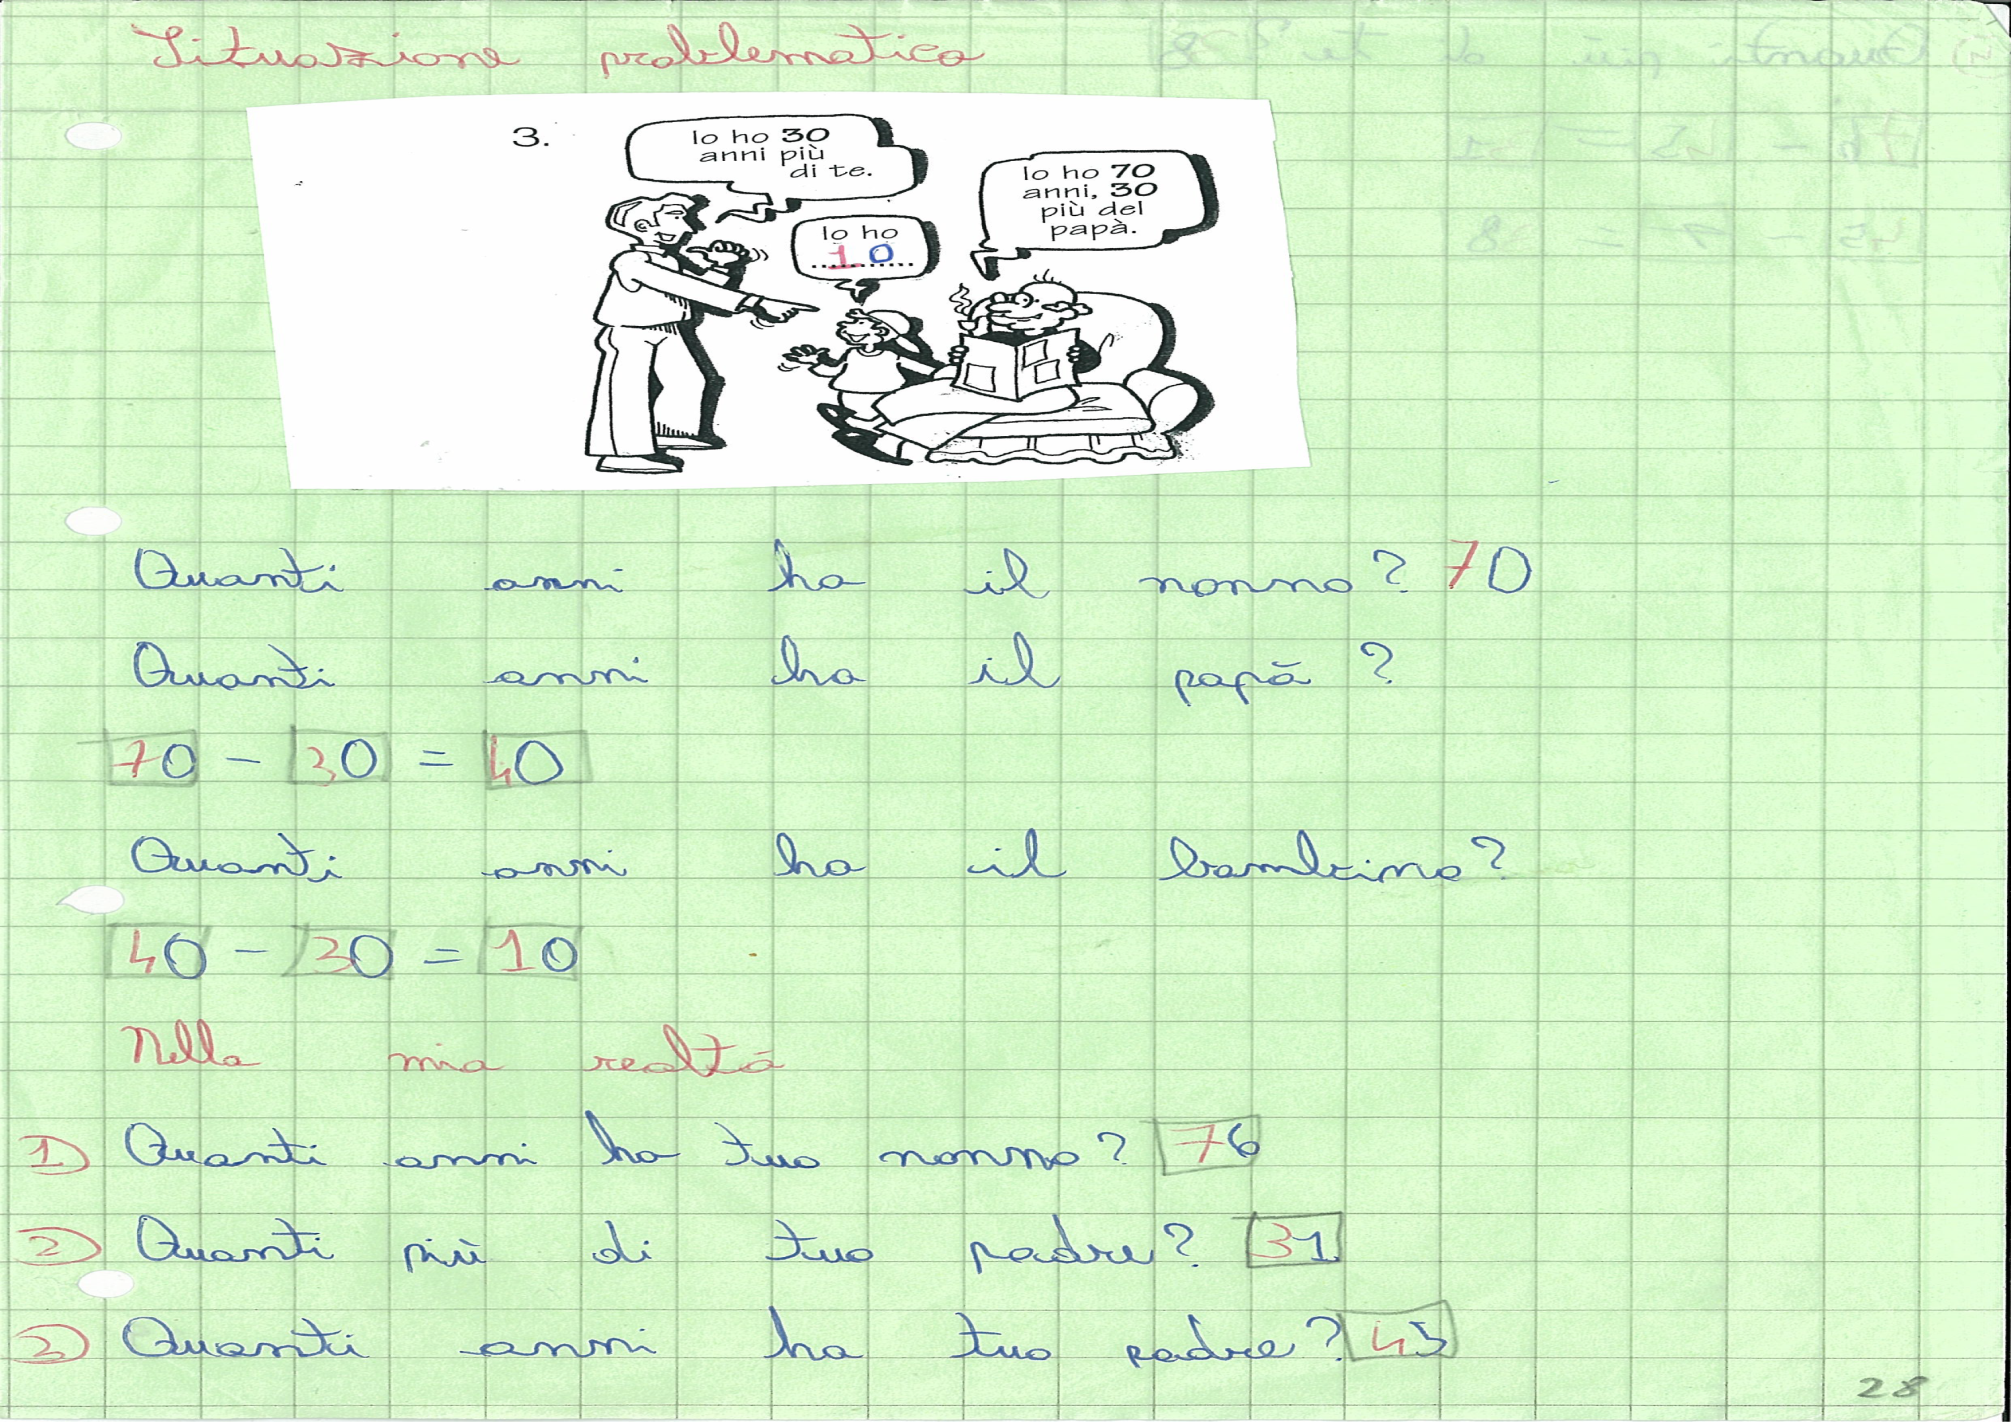 Situazione problematica
3.
Io ho 30
anni più
di te.
Io ho 70
anni, 30
più del
papà.
Io ho
10
Quanti anni ha il nonno? 70
Quanti anni ha il papà?
70 - 30 = 40
Quanti anni ha il bambino?
40 - 30 = 10
Nella mia realtà
1) Quanti anni ha tuo nonno? 76
2) Quanti più di tuo padre? 31
3) Quanti anni ha tuo padre? 45
28